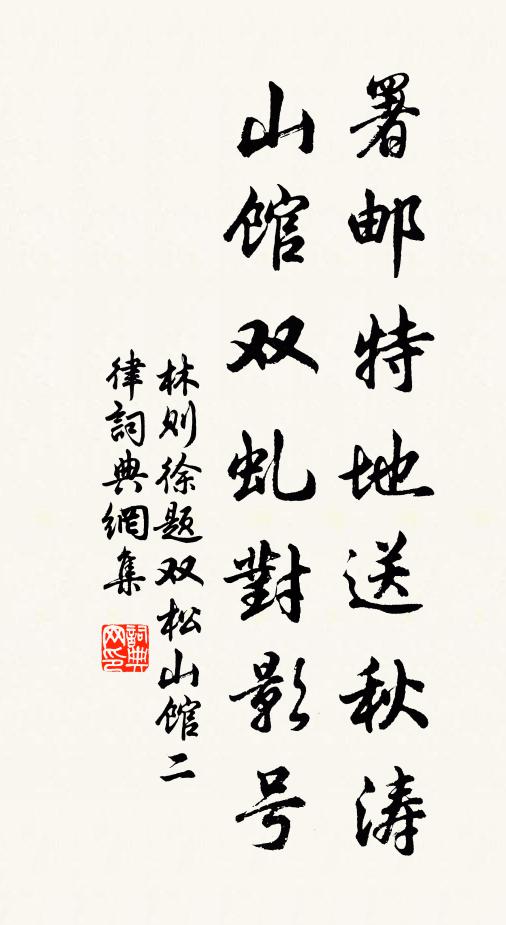 署邮特地送秋涛
山馆双虬對影号
林则徐题双松山馆二
律詞典網集
詞典网印